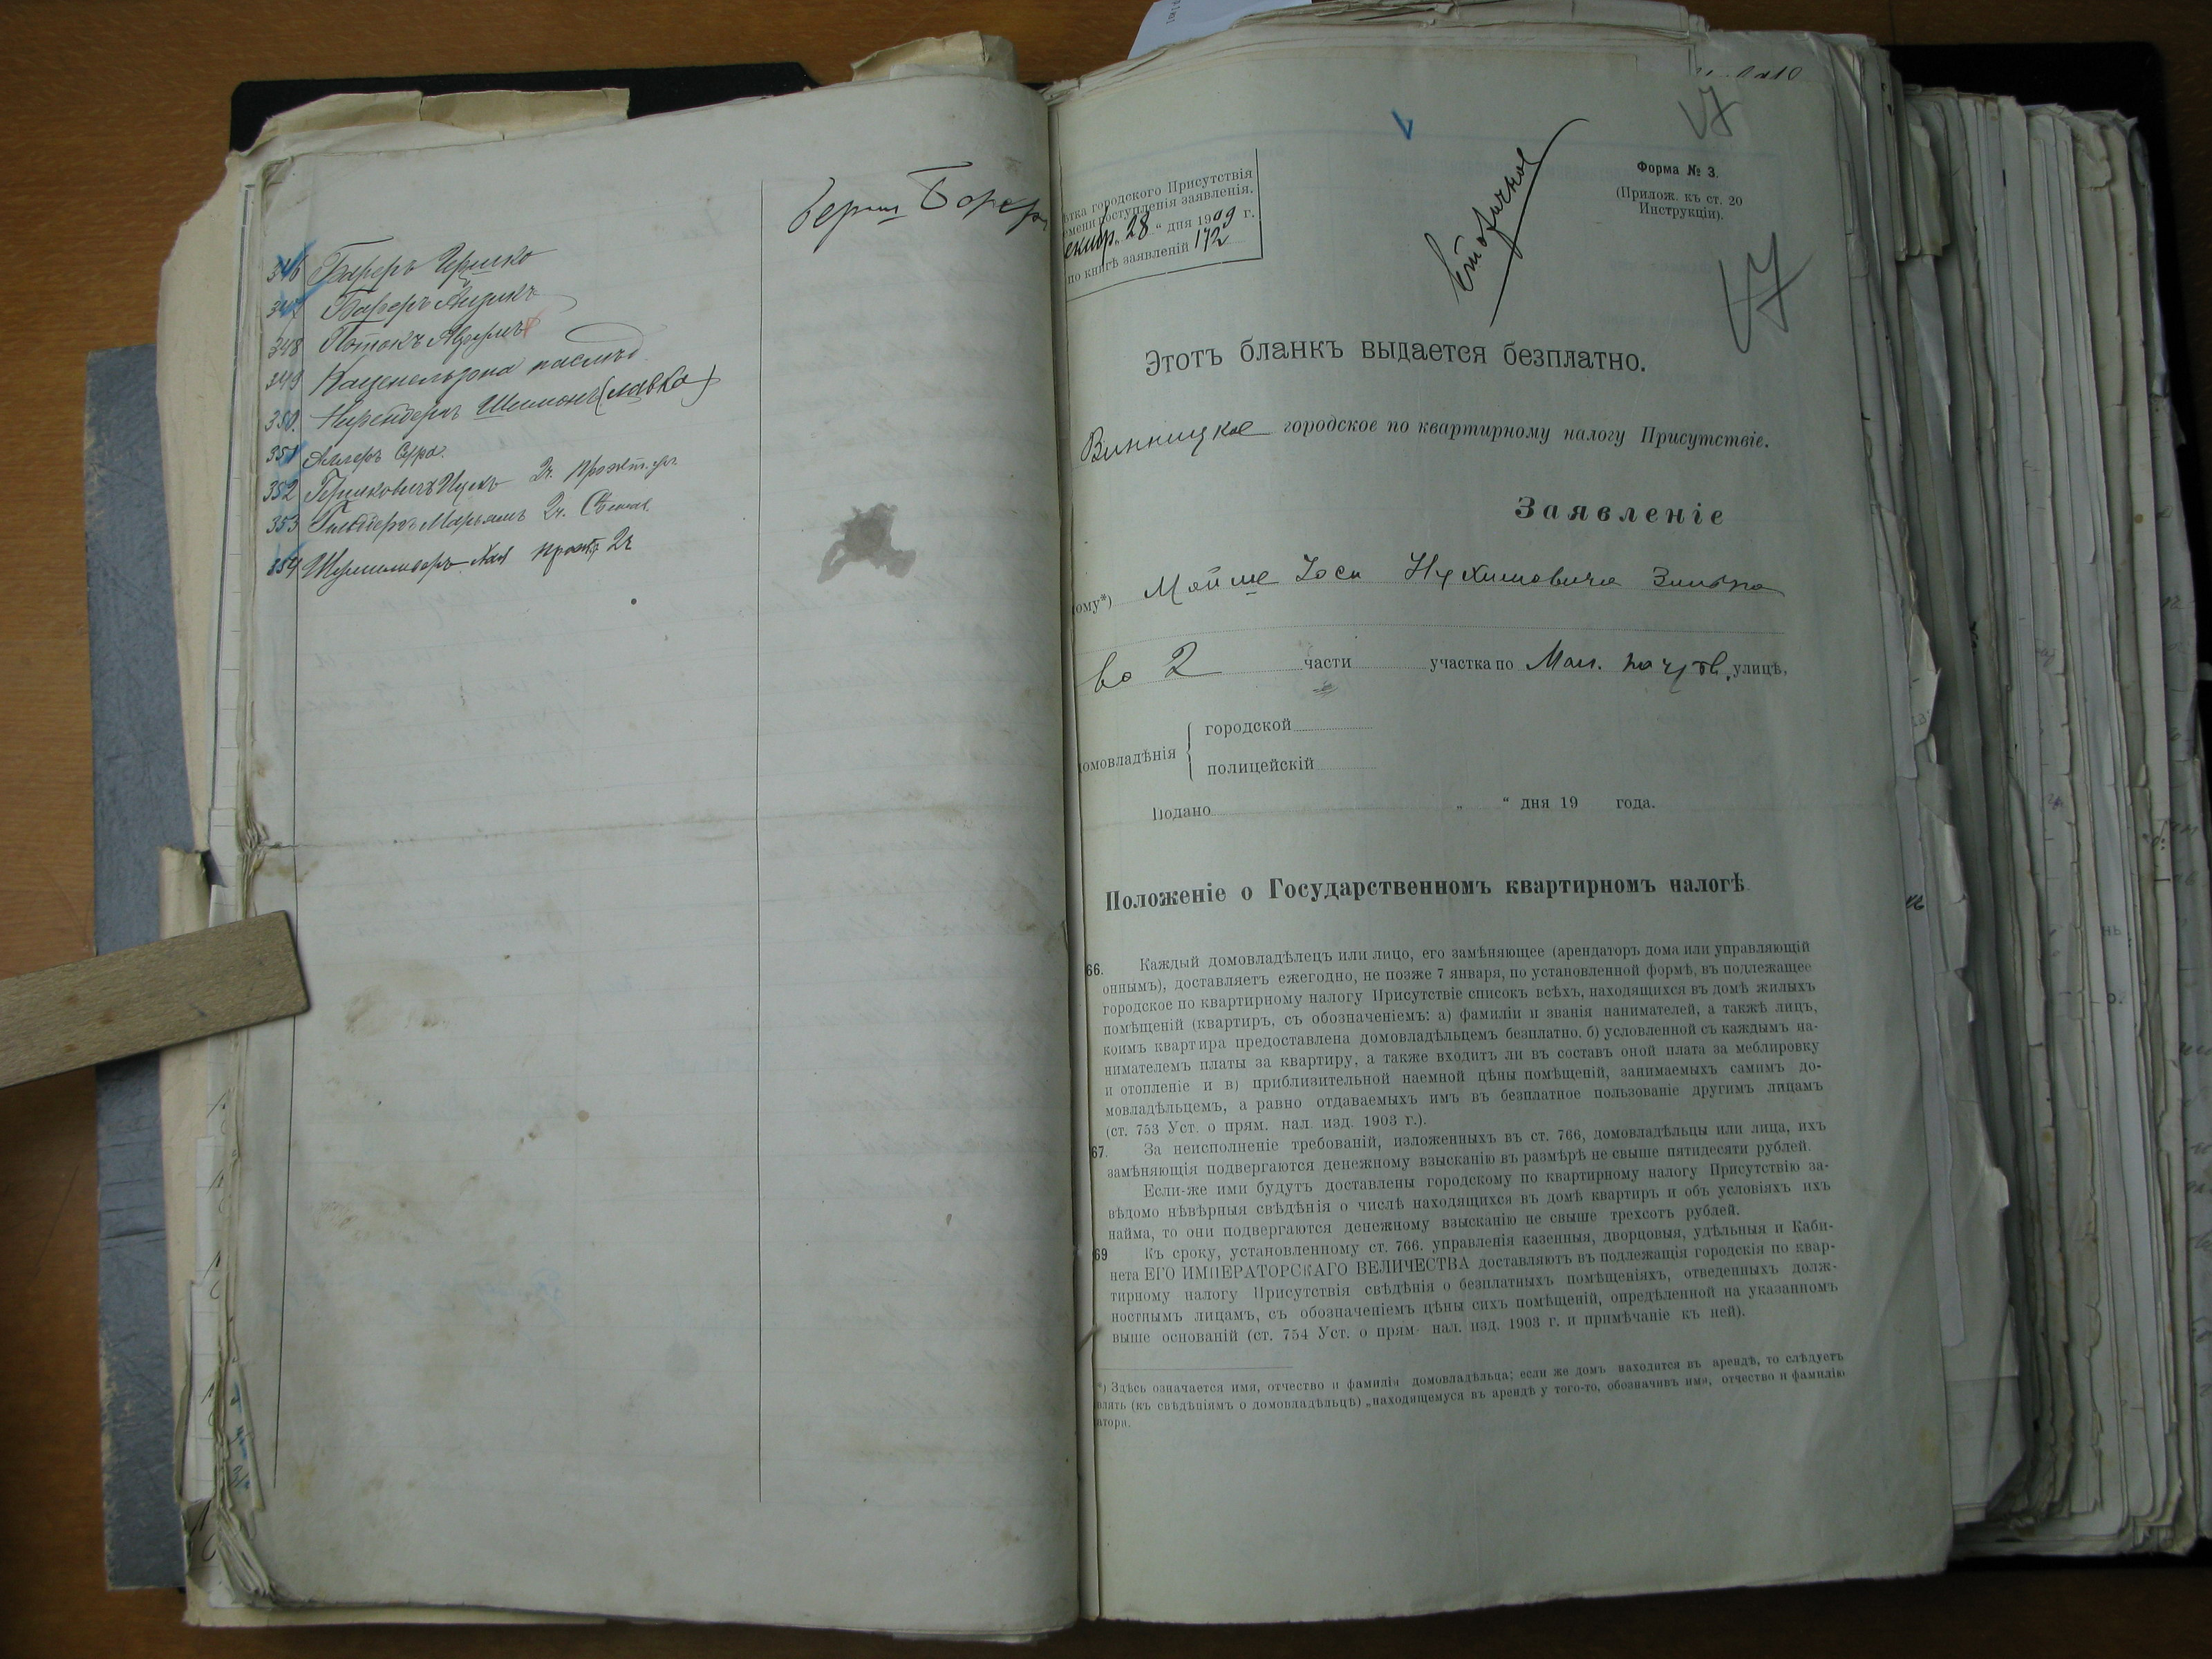 346 Бареръ Гершко
347 Бареръ Айзикъ
348 Потокъ Аврумъ
349 Каценельсона наслѣд.
350. Шимонъ (лавка)
351 Адлеръ Сура.
352 Гершковичъ Ицекъ 2ч.
353 Марьямъ 2ч.
354 2ч
Берко Борер
Форма № 3.
(Прилож. къ ст. 20
Инструкціи).
ѣтка городского Присутствія
емени поступленія заявленія.
екабр „28“ дня 1909 г.
по книгѣ заявленій 172
Вторичное
Этотъ бланкъ выдается безплатно.
Винницкое городское по квартирному налогу Присутствіе.
Заявленіе
ому*) Мойше Іося Нухимовича
во 2 части участка по Мал. почтов. улицѣ,
омовладѣнія
городской
полицейскій
Подано „ “ дня 19 года.
Положеніе о Государственномъ квартирномъ налогѣ.
66. Каждый домовладѣлецъ или лицо, его замѣняющее (арендаторъ дома или управляющій
оннымъ), доставляетъ ежегодно, не позже 7 января, по установленной формѣ, въ подлежащее
городское по квартирному налогу Присутствіе списокъ всѣхъ, находящихся въ домѣ жилыхъ
помѣщеній (квартиръ, съ обозначеніемъ: а) фамиліи и званія нанимателей, а такжѣ лицъ,
коимъ квартира предоставлена домовладѣльцемъ безплатно. б) условленной съ каждымъ на-
нимателемъ платы за квартиру, а также входитъ ли въ составъ оной плата за меблировку
и отопленіе и в) приблизительной наемной цѣны помѣщеній, занимаемыхъ самимъ до-
мовладѣльцемъ, а равно отдаваемыхъ имъ въ безплатное пользованіе другимъ лицамъ
(ст. 753 Уст. о прям. нал. изд. 1903 г.).
67. За неисполненіе требованій, изложенныхъ въ ст. 766, домовладѣльцы или лица, ихъ
замѣняющія подвергаются денежному взысканію въ размѣрѣ не свыше пятидесяти рублей.
Если-же ими будутъ доставлены городскому по квартирному налогу Присутствію за-
вѣдомо нѣвѣрныя свѣдѣнія о числѣ находящихся въ домѣ квартиръ и объ условіяхъ ихъ
найма, то они подвергаются денежному взысканію не свыше трехсотъ рублей.
69 Къ сроку, установленному ст. 766. управленія казенныя, дворцовыя, удѣльныя и Каби-
нета ЕГО ИМПЕРАТОРСКАГО ВЕЛИЧЕСТВА доставляютъ въ подлежащія городскія по квар-
тирному налогу Присутствія свѣдѣнія о безплатныхъ помѣщеніяхъ, отведенныхъ долж-
ностнымъ лицамъ, съ обозначеніемъ цѣны сихъ помѣщеній, опредѣленной на указанномъ
выше основаній (ст. 754 Уст. о прям- нал. изд. 1903 г. и примѣчаніе къ ней).
*) Здѣсь означается имя, отчество и фамилія домовладѣльца; если же домъ находится въ арендѣ, то слѣдуетъ
влять (къ свѣдѣніямъ о домовладѣльцѣ) „находящемуся въ арендѣ у того-то, обозначивъ имя, отчество и фамилію
атора.